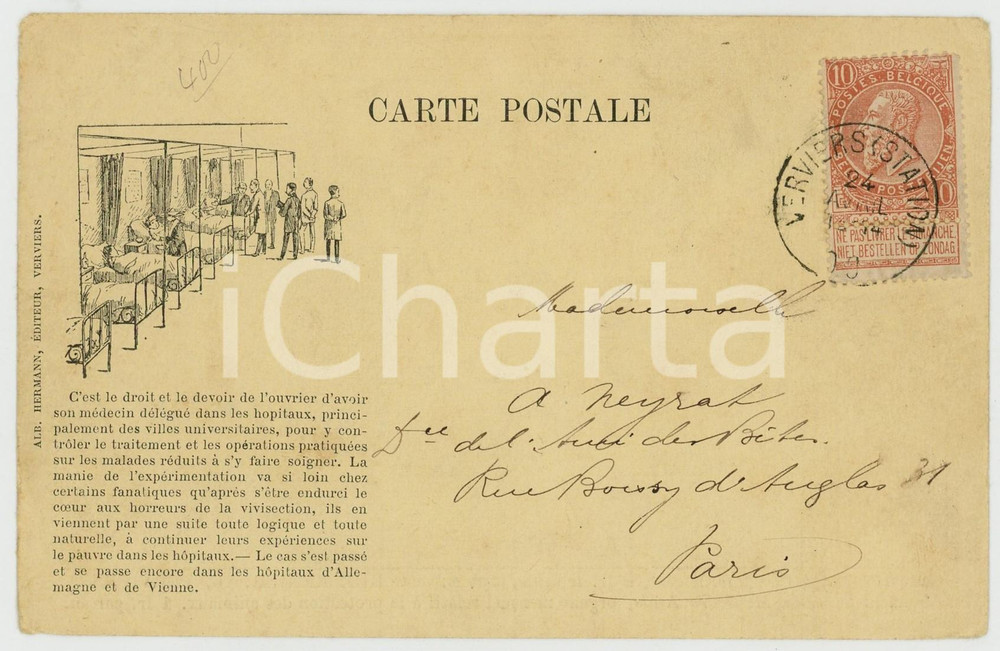 400
CARTE POSTALE
10
POSTES BELGIQUE
VERVIERS (STATION)
24
AVRIL
NE PAS LIVRER LE DIMANCHE
NIET BESTELLEN OP ZONDAG
ALB. HERMANN, ÉDITEUR, VERVIERS.
iCharta
Mademoiselle
A Neyrat
Dce de l'Ami des Bêtes.
Rue Boissy d'Anglas 31
Paris
C'est le droit et le devoir de l'ouvrier d'avoir
son médecin délégué dans les hopitaux, princi-
palement des villes universitaires, pour y con-
trôler le traitement et les opérations pratiquées
sur les malades réduits à s'y faire soigner. La
manie de l'expérimentation va si loin chez
certains fanatiques qu'après s'être endurci le
cœur aux horreurs de la vivisection, ils en
viennent par une suite toute logique et toute
naturelle, à continuer leurs expériences sur
le pauvre dans les hôpitaux.— Le cas s'est passé
et se passe encore dans les hôpitaux d'Alle-
magne et de Vienne.